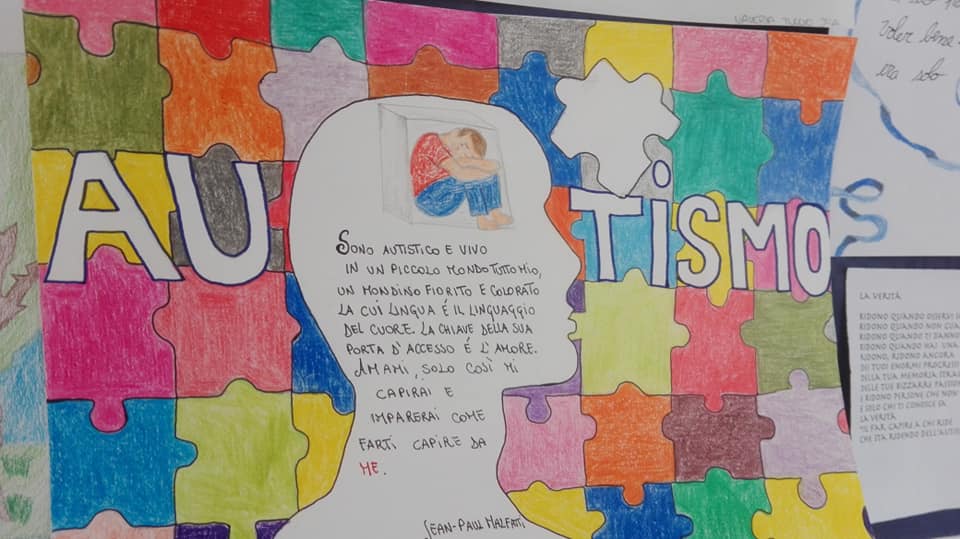 AUTISMO
SONO AUTISTICO E VIVO
IN UN PICCOLO MONDO TUTTO MIO,
UN MONDINO FIORITO E COLORATO
LA CUI LINGUA É IL LINGUAGGIO
DEL CUORE. LA CHIAVE DELLA SUA
PORTA D'ACCESSO É L'AMORE.
AMAMI, SOLO COSÌ MI
CAPIRAI E
IMPARERAI COME
FARTI CAPIRE DA
ME.
JEAN-PAUL MALFATTI
VALERIA
voler bene
era solo
LA VERITÀ
RIDONO QUANDO OSSERVI
RIDONO QUANDO NON
RIDONO QUANDO TI DANNO
RIDONO QUANDO HAI UNA
RIDONO, RIDONO ANCORA
DEI TUOI ENORMI PROGRESSI
DELLA TUA MEMORIA
DELLE TUE BIZZARRE
E RIDONO PERSONE CHE NON
E SOLO CHI TI CONOSCE SA
LA VERITÀ
FAR CAPIRE A CHI RIDE
CHE STA RIDENDO